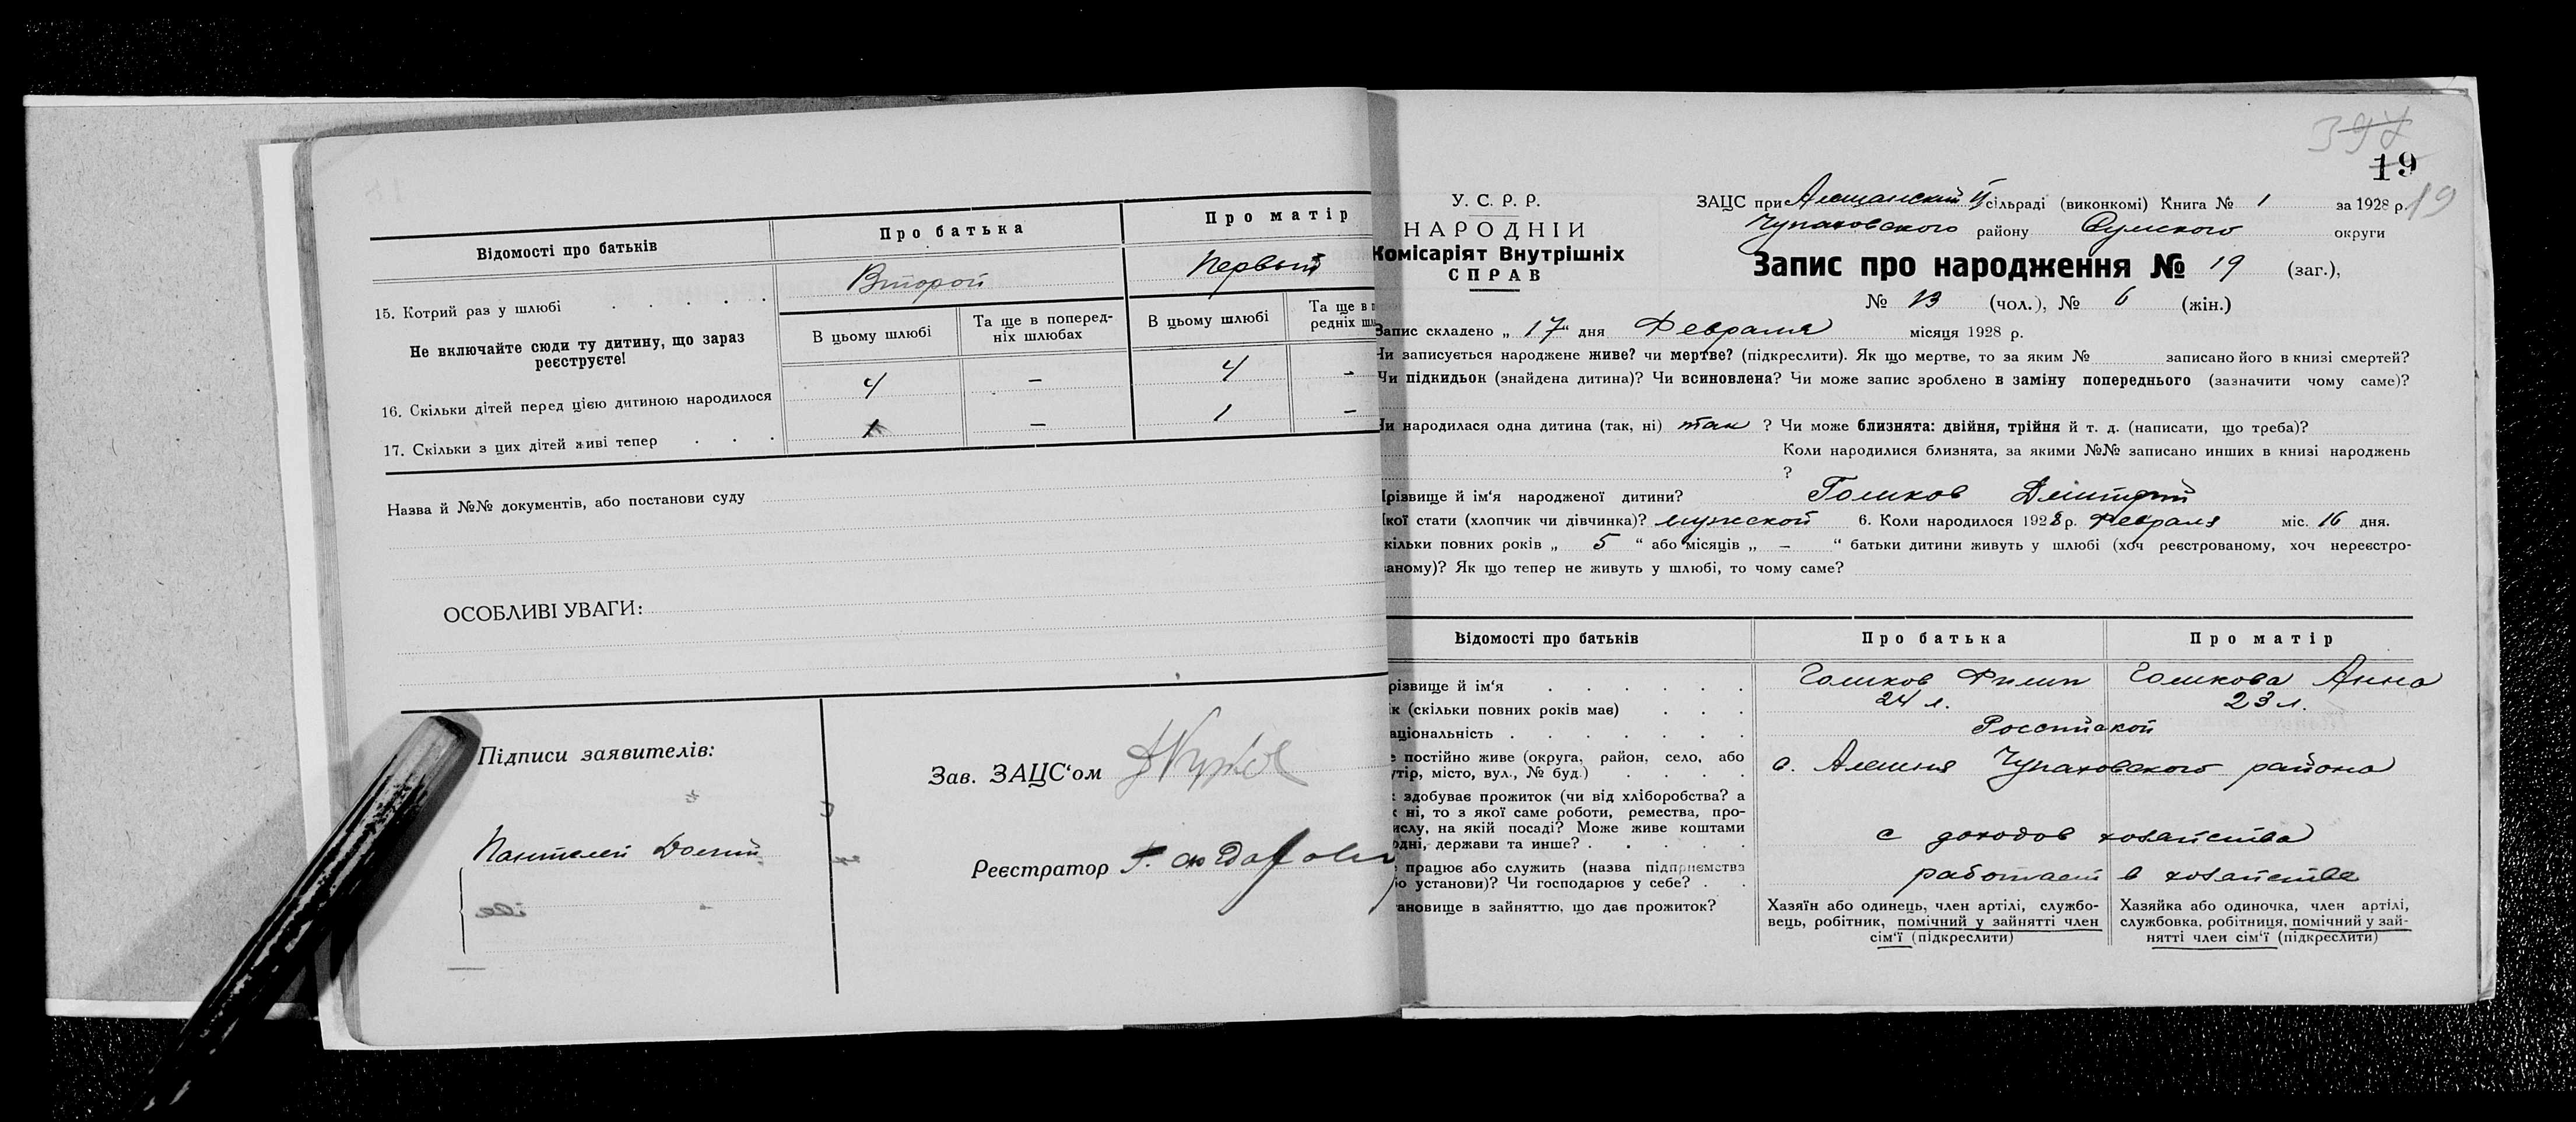 Відомості про батьків
Про батька
Про матір
15. Котрий раз у шлюбі
Второй
Первый
Не включайте сюди ту дитину, що зараз
реєструєте!
В цьому шлюбі
Та ще в поперед-
ніх шлюбах
В цьому шлюбі
Та ще в п
редніх шл
16. Скільки дітей перед цією дитиною народилося
4 – 4 –
17. Скільки з цих дітей живі тепер
1 – 1 –
Назва й №№ документів, або постанови суду
ОСОБЛИВІ УВАГИ:
Підписи заявителів:
Пантелей
Зав. ЗАЦС‘ом
Реєстратор
397
19
19
У. С. Р. Р.
НАРОДНІЙ
Комісаріят Внутрішніх
СПРАВ
ЗАЦС при сільраді (виконкомі) Книга № 1 за 1928 р.
Чупаховского району Сумского округи
Запис про народження № 19 (заг.),
№ 13 (чол.), № 6 (жін.)
Запис складено „ 17 “ дня Февраля місяця 1928 р.
Чи записується народжене живе? чи мертве? (підкреслити). Як що мертве, то за яким № записано його в книзі смертей?
Чи підкидьок (знайдена дитина)? Чи всиновлена? Чи може запис зроблено в заміну попереднього (зазначити чому саме)?
Чи народилася одна дитина (так, ні) так ? Чи може близнята: двійня, трійня й т. д. (написати, що треба)?
Коли народилися близнята, за якими №№ записано инших в книзі народжень
?
різвище й ім‘я народженої дитини? Голиков Дмитрий
кої стати (хлопчик чи дівчинка)? мужской 6. Коли народилося 1928 р. Февраля міс. 16 дня.
кільки повних років „ 5 “ або місяців „ – “ батьки дитини живуть у шлюбі (хоч реєстрованому, хоч нереєстро-
ваному)? Як що тепер не живуть у шлюбі, то чому саме?
Відомості про батьків
Про батька
Про матір
різвище й ім‘я
Голиков Филип
Голикова Анна
к (скільки повних років має)
24 л.
23 л.
аціональність
Российской
е постійно живе (округа, район, село, або
утір, місто, вул., № буд.)
с. Алешня Чупаховского района
здобуває прожиток (чи від хліборобства? а
к ні, то з якої саме роботи, ремества, про-
ислу, на якій посаді? Може живе коштами
одні, держави та инше?
с доходов хозяйства
працює або служить (назва підприємства
о установи)? Чи господарює у себе?
работает в хозяйстве
ановище в зайняттю, що дає прожиток?
Хазяїн або одинець, член артілі, службо-
вець, робітник, помічний у зайнятті член
сім‘ї (підкреслити)
Хазяйка або одиночка, член артілі,
службовка, робітниця, помічний у зай-
нятті член сім‘ї (підкреслити)